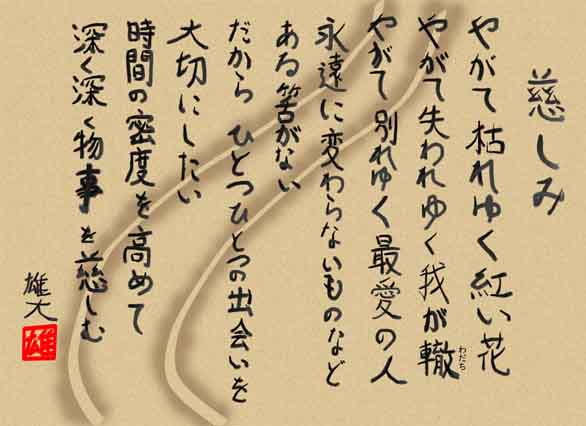 慈しみ
やがて枯れゆく紅い花
やがて失われゆく我が轍
わだち
やがて別れゆく最愛の人
永遠に変わらないものなど
ある筈がない
だから ひとつひとつの出会いを
大切にしたい
時間の密度を高めて
深く深く物事を慈しむ
雄大